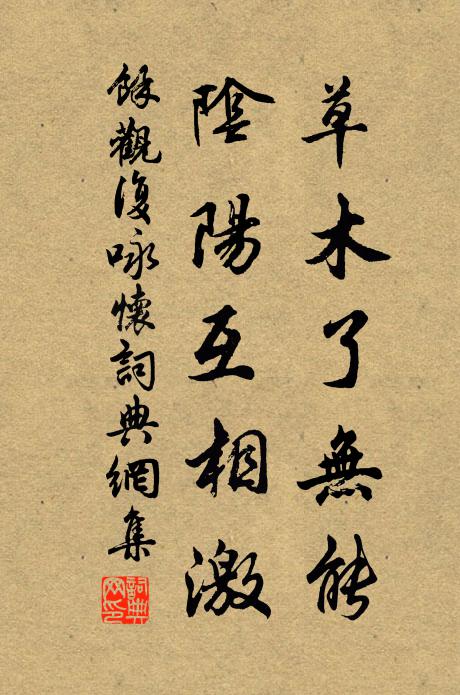 草木了無能
陰陽互相激
餘觀復咏懷詞典網集
詞典網印